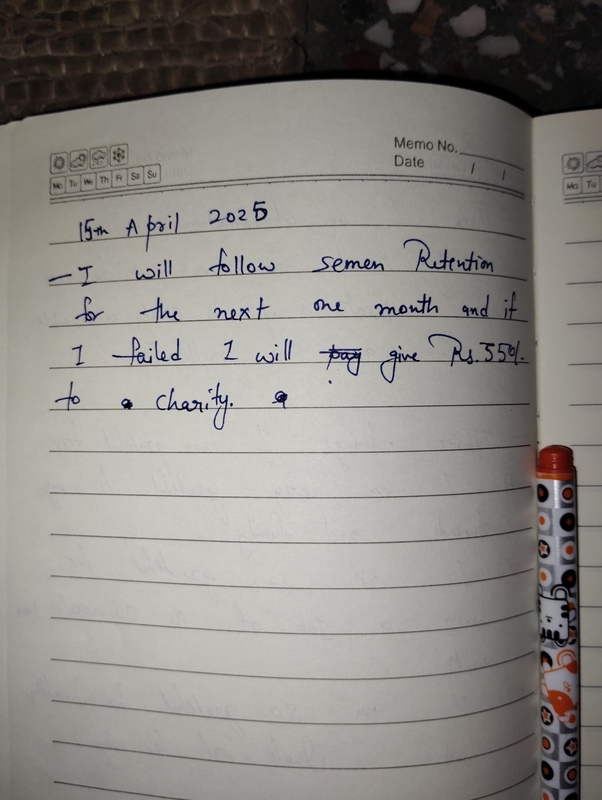 Memo No.
Date / /
Mo Tu We Th Fr Sa Su
Mo Tu
15th April 2025
— I will follow semen Retention
for the next one month and if
I failed I will give Rs. 550/.
to charity.